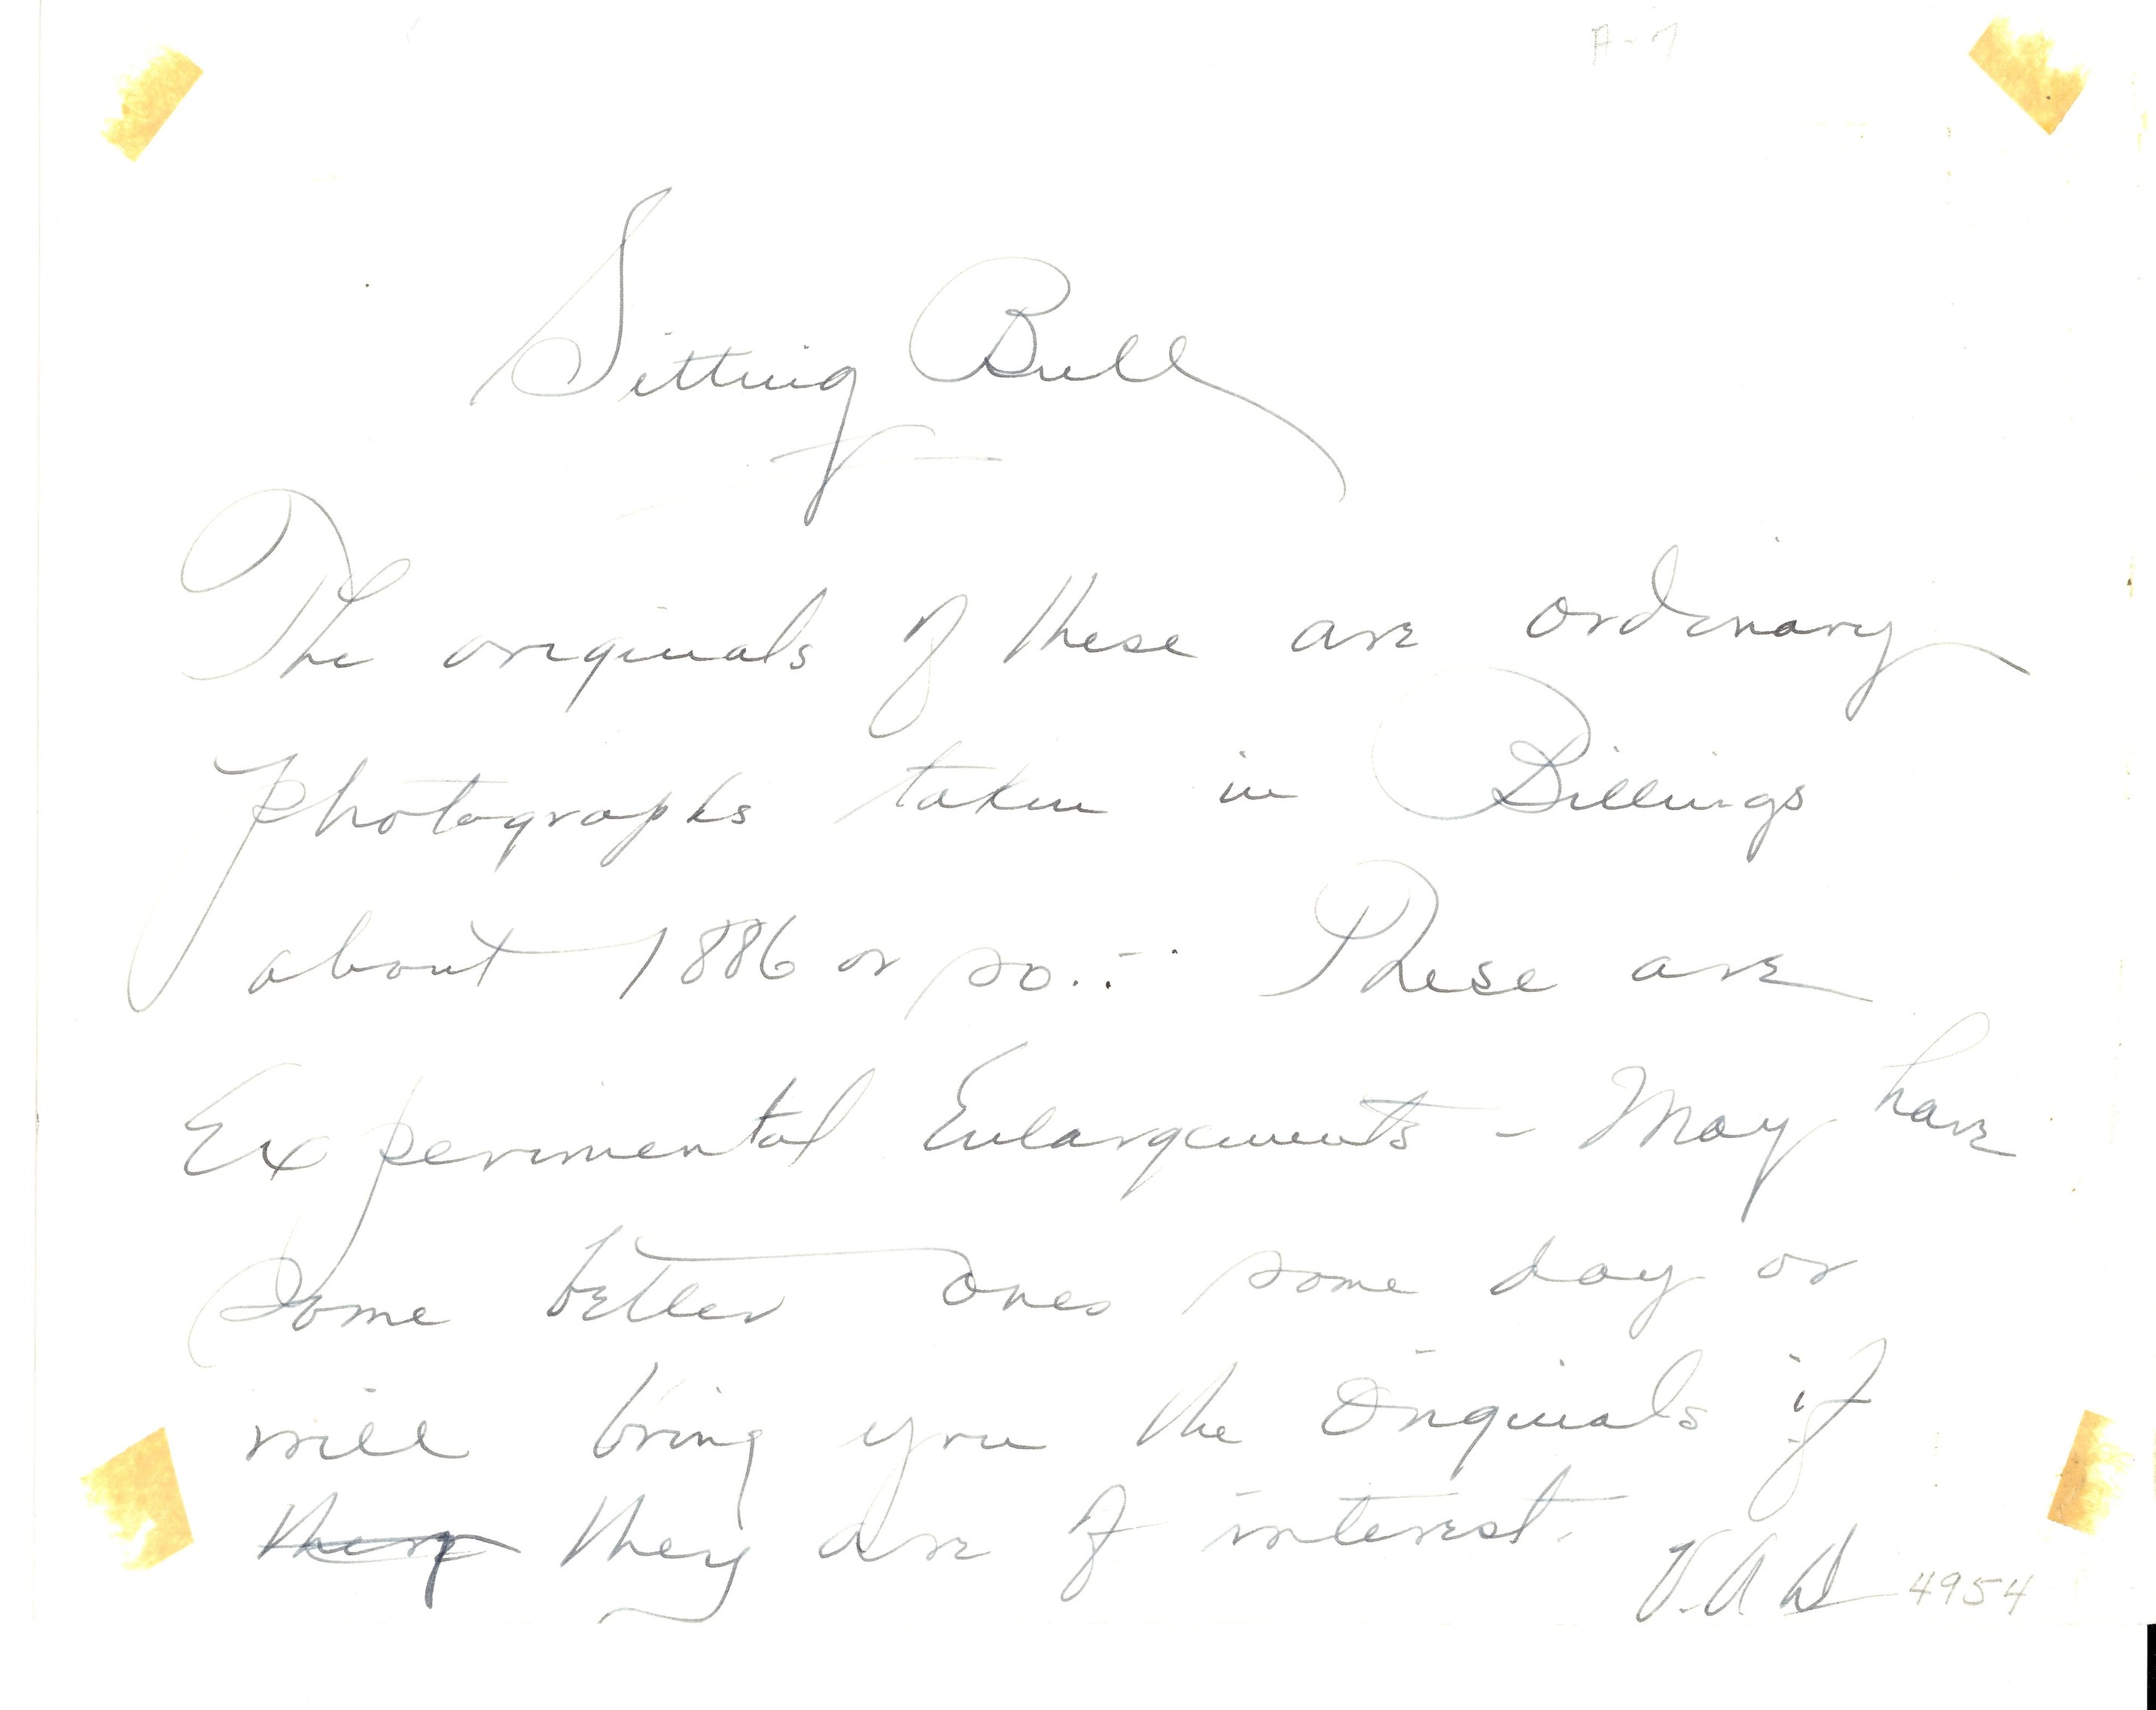 A-7
Sitting Bull
The originals of these are ordinary
photographs taken in Billings
about 1886 or so.:- These are
Experimental Enlargements - May have
Some better ones some day or
will bring you the Originals if
they they are of interest.
V.A.W 4954